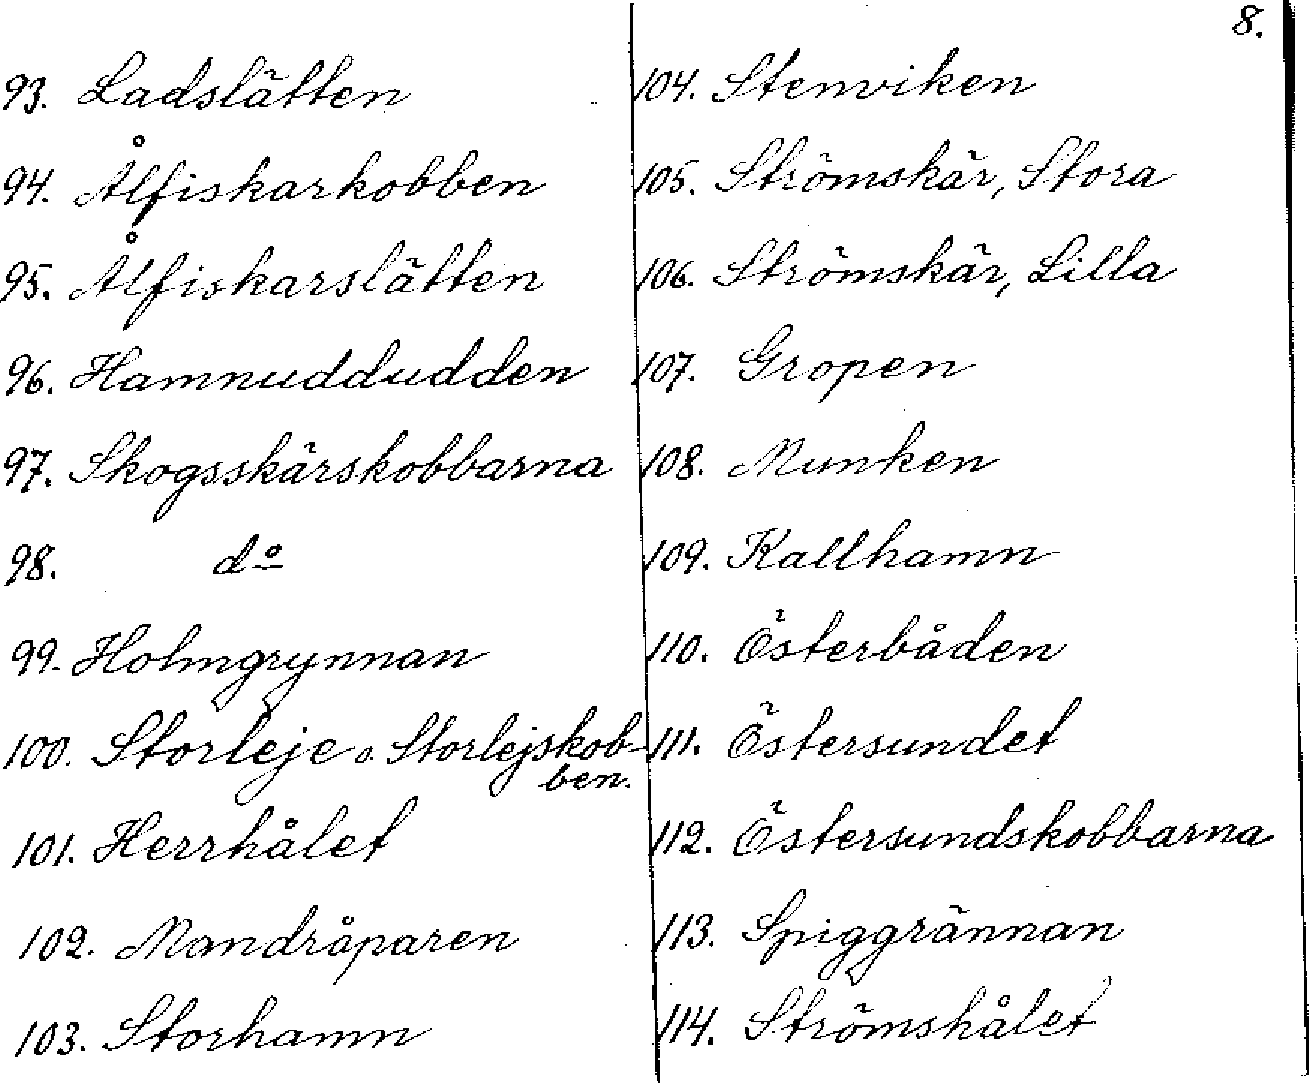 8.
93. Ladslätten
94. Ålfiskarkobben
95. Ålfiskarslätten
96. Hamnuddudden
97. Skogsskärskobbarna
98. do
99. Holmgrynnan
100. Storleje o. Storlejskob-
ben.
101. Herrhålet
102. Mandråparen
103. Storhamn
104. Stenviken
105. Strömskär, Stora
106. Strömskär, Lilla
107. Gropen
108. Munken
109. Kallhamn
110. Österbåden
111. Östersundet
112. Östersundskobbarna
113. Spiggrännan
114. Strömshålet